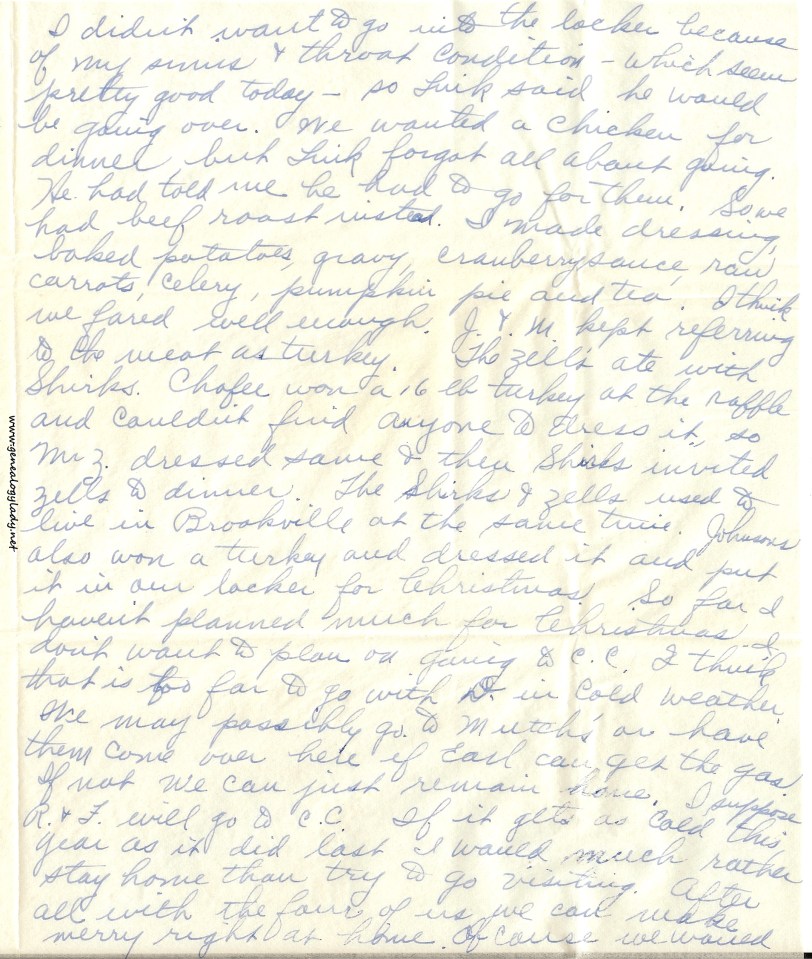 I didn't want to go into the locker because
of my sinus & throat condition - which seem
pretty good today - so Link said he would
be going over. We wanted a chicken for
dinner, but Link forgot all about going.
He had told me he had to go for them. So we
had beef roast instead. I made dressing,
baked potatoes, gravy, cranberry sauce, raw
carrots, celery, pumpkin pie and tea. I think
we fared well enough. J. & M. kept referring
to the meat as turkey. The Zells ate with
Shirks. Chafee won a 16 lb turkey at the raffle
and couldn't find anyone to dress it, so
Mr Z. dressed same & then Shirks invited
Zells to dinner. The Shirks & Zells used to
live in Brookville at the same time. Johnsons
also won a turkey and dressed it and put
it in our locker for Christmas. So far I
haven't planned much for Christmas - I
don't want to plan on going to C.C. I think
that is too far to go with D. in cold weather.
We may possibly go to Mutch's or have
them come over here if Earl can get the gas.
If not we can just remain home. I suppose
R. & F. will go to C.C. If it gets as cold this
year as it did last I would much rather
stay home than try to go visiting. After
all with the four of us we can make
merry right at home. Of course we would
www.genealogylady.net